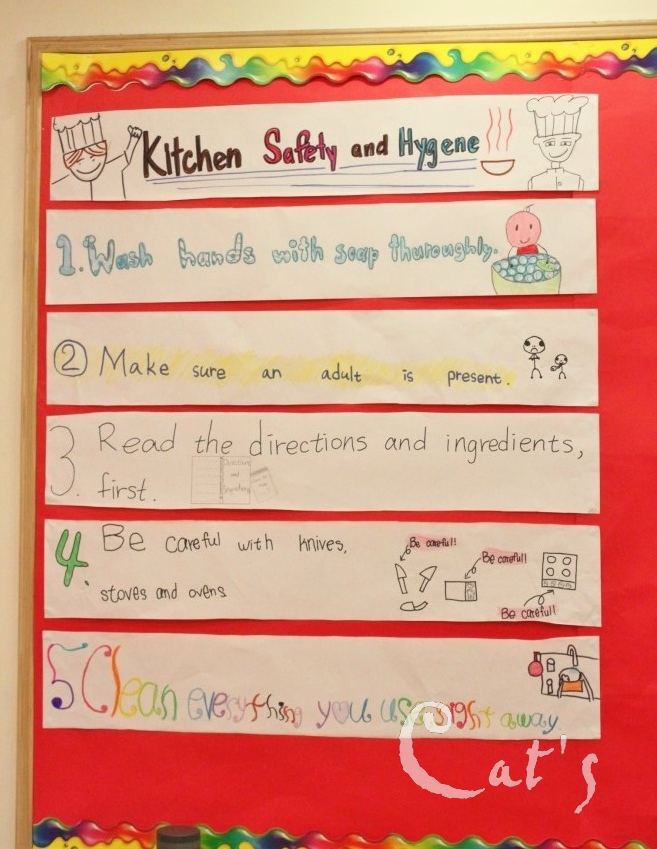 Kitchen Safety and Hygene
1. Wash hands with soap thuroughly.
2 Make sure an adult is present.
3. Read the directions and ingredients,
first.
Directions
and
Ingredients
4. Be careful with knives,
stoves and ovens
Be careful!
Be careful!
Be careful!
5 Clean everything you use right away.
Cat's